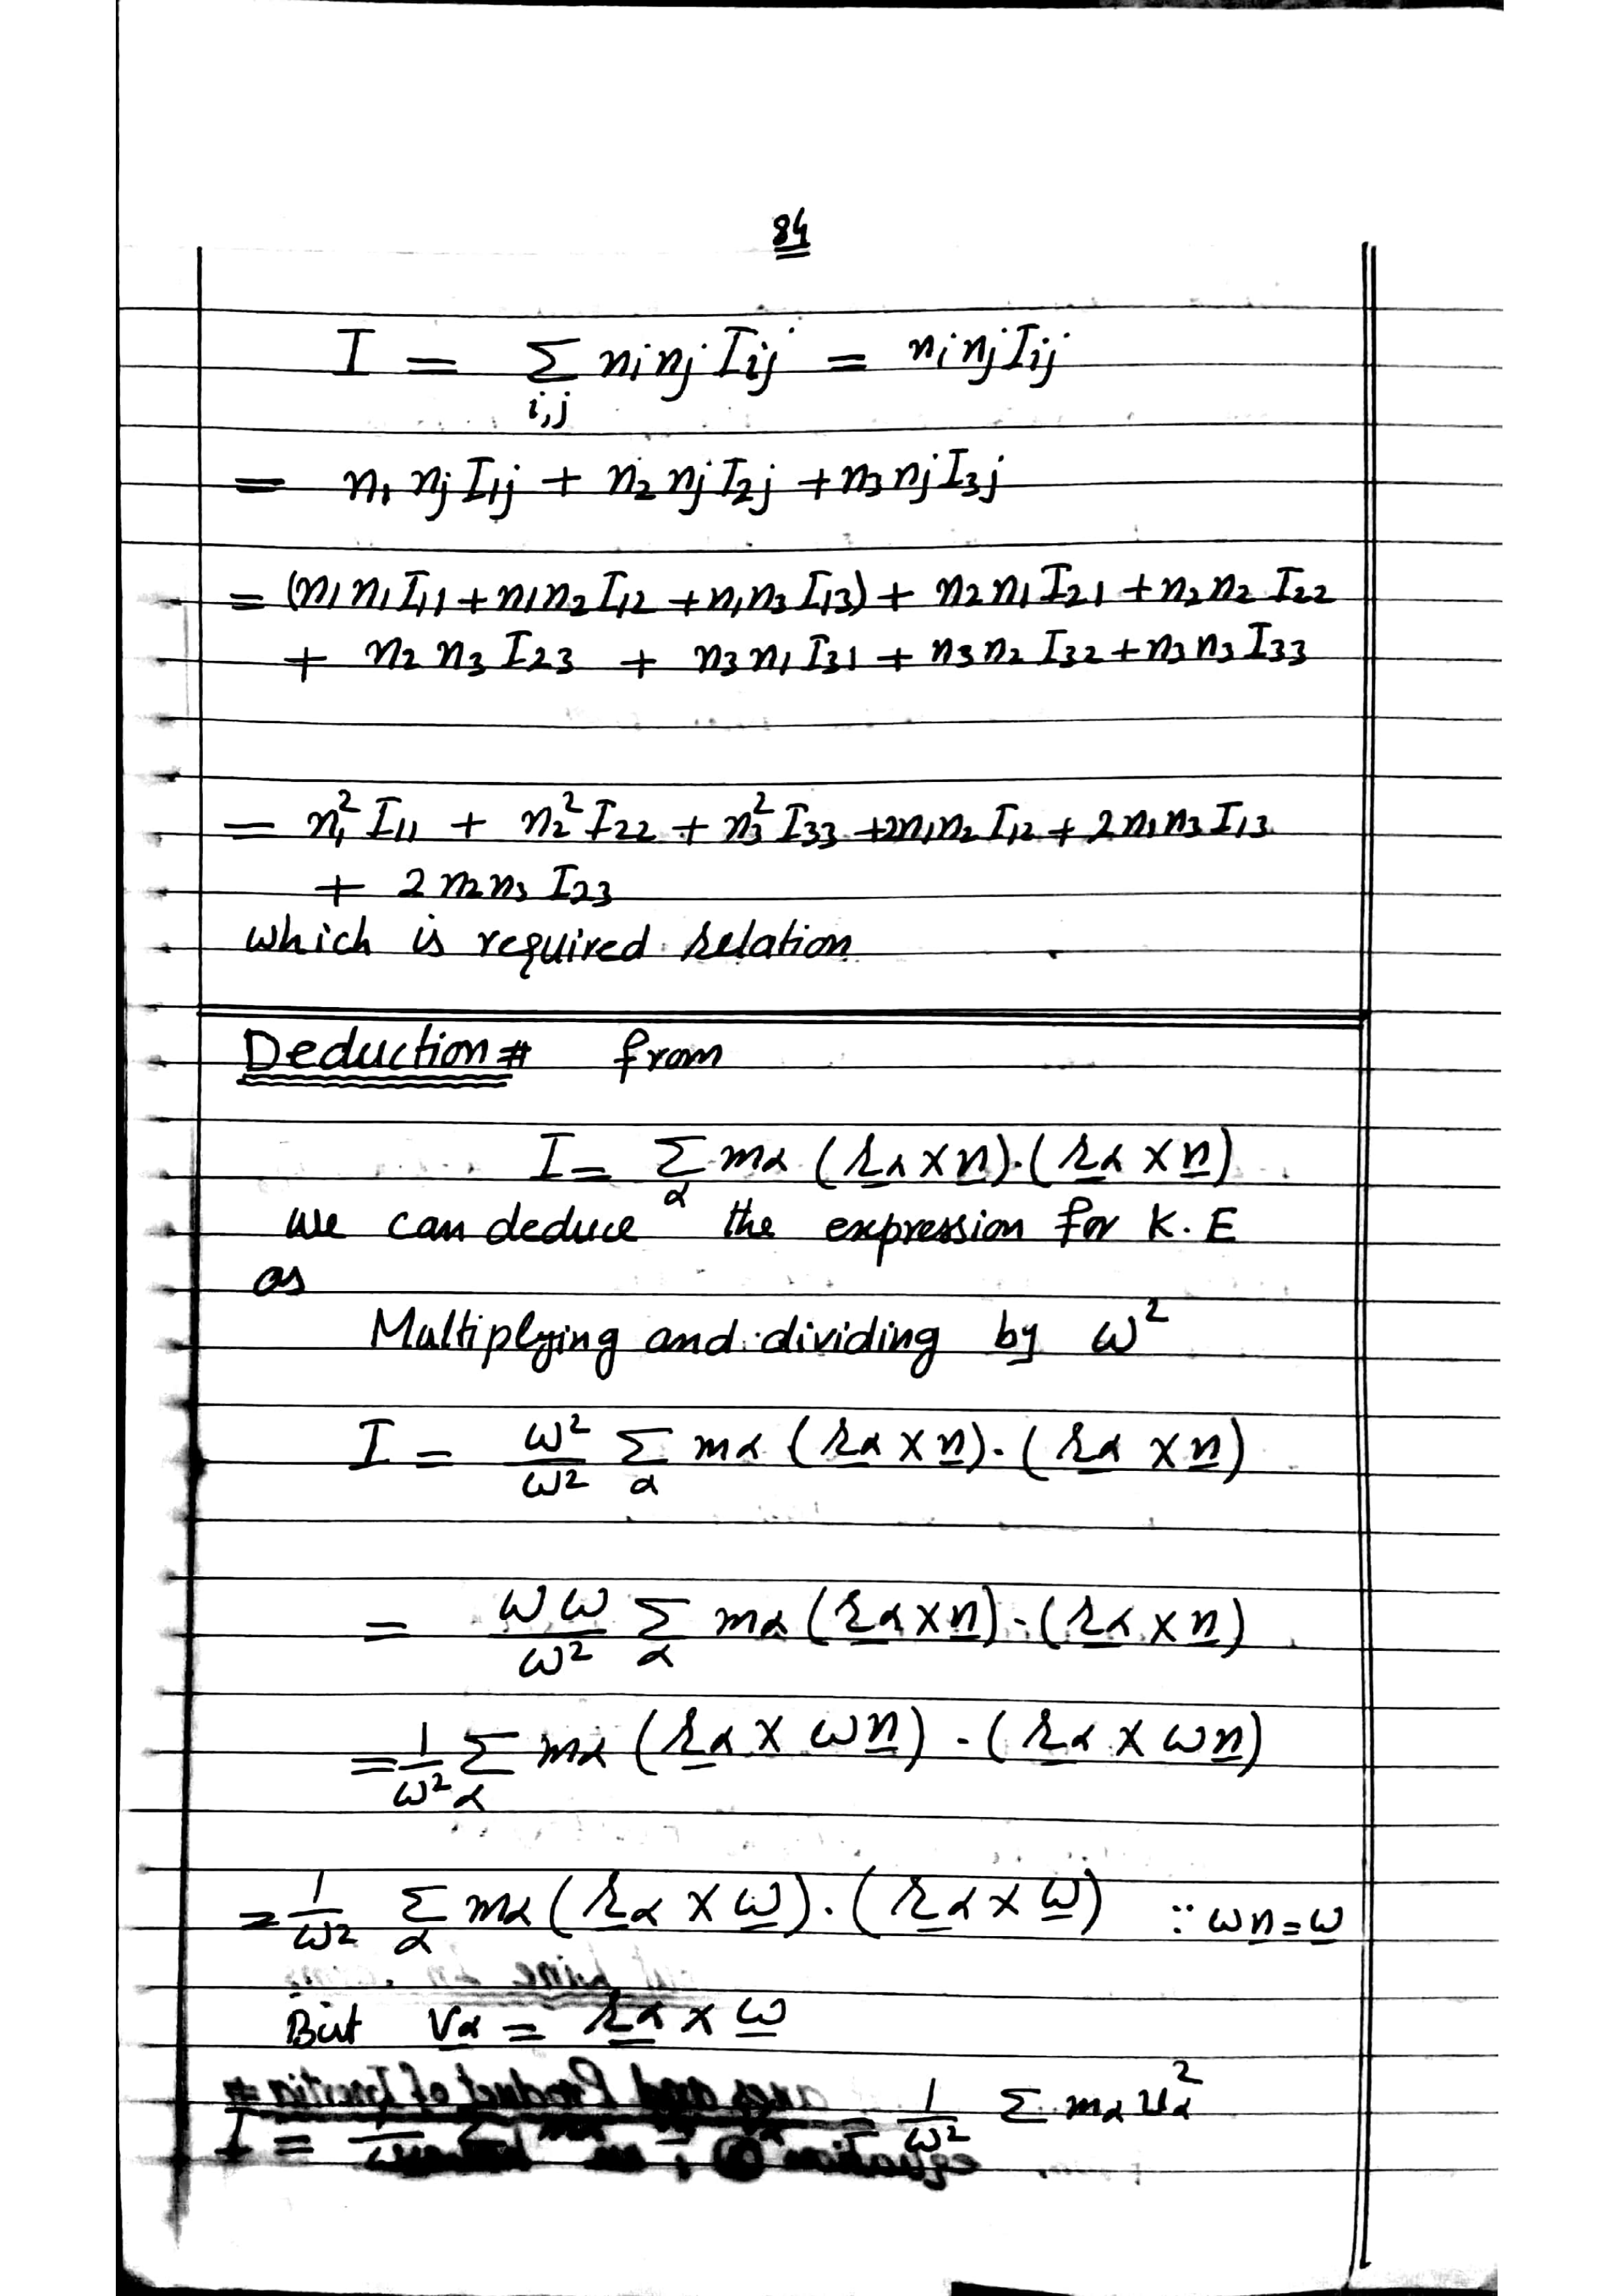 84
I = Σ ninj Iij = ninjIij
i,j
= n₁ nj I₁j + n₂ nj I₂j + n₃ nj I₃j
= (n₁n₁I₁₁ + n₁n₂I₁₂ + n₁n₃I₁₃) + n₂n₁I₂₁ + n₂n₂I₂₂
+ n₂n₃I₂₃ + n₃n₁I₃₁ + n₃n₂I₃₂ + n₃n₃I₃₃
= n₁²I₁₁ + n₂²I₂₂ + n₃²I₃₃ + 2n₁n₂I₁₂ + 2n₁n₃I₁₃
+ 2n₂n₃I₂₃
which is required relation
Deduction# from
I = Σ mα (rα × n)·(rα × n)
α
we can deduce the expression for K.E
as
Multiplying and dividing by ω²
I = ω²/ω² Σα mα (rα × n)·(rα × n)
= ωω/ω² Σα mα (rα × n)·(rα × n)
= 1/ω² Σα mα (rα × ωn)·(rα × ωn)
= 1/ω² Σα mα (rα × ω)·(rα × ω) ∵ ωn = ω
But vα = rα × ω
I = = 1/ω² Σ mα vα²